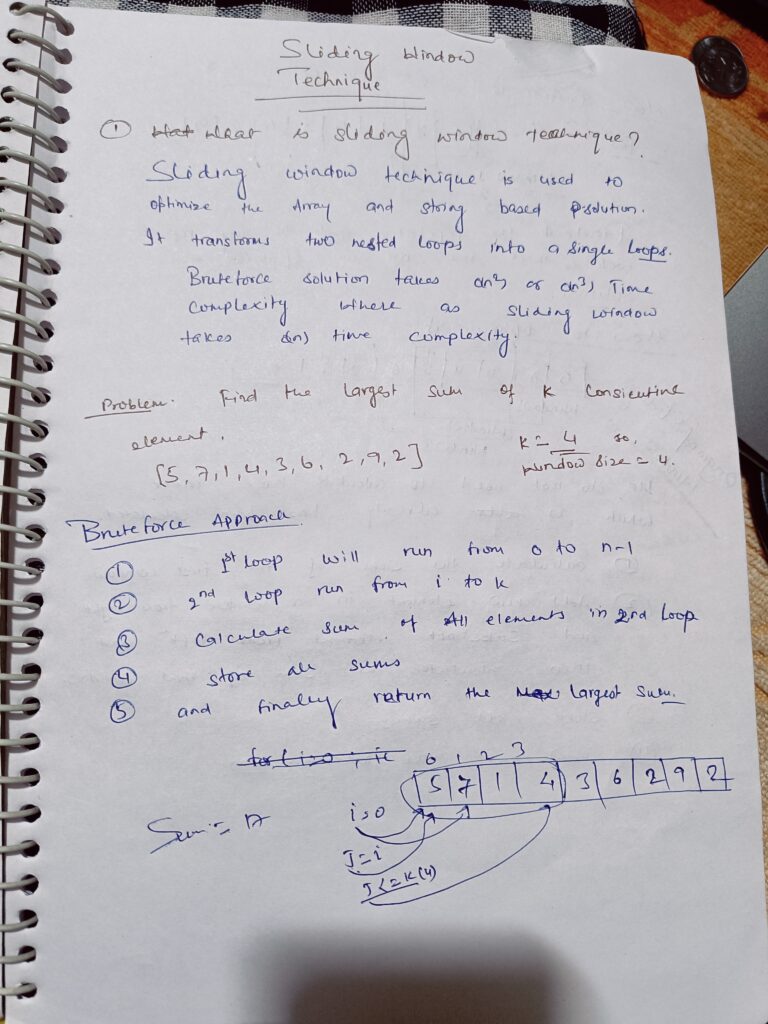 Sliding Window
Technique
① What is sliding window teachnique?
Sliding window technique is used to
optimize the Array and string based solution.
It transforms two nested loops into a single loops.
Bruteforce solution takes O(n²) or O(n³) Time
complexity where as sliding window
takes O(n) time complexity.
Problem. Find the largest sum of K
element.
[5, 7, 1, 4, 3, 6, 2, 9, 2]
K = 4 so,
window size = 4.
Bruteforce Approach
① 1st loop will run from 0 to n-1
② 2nd loop run from i to k
③ calculate sum of All elements in 2nd loop
④ store all sums
⑤ and finally return the largest sum.
0 1 2 3
5 7 1 4 3 6 2 9 2
i=0
Sum = 17
J=i
J<=K(4)